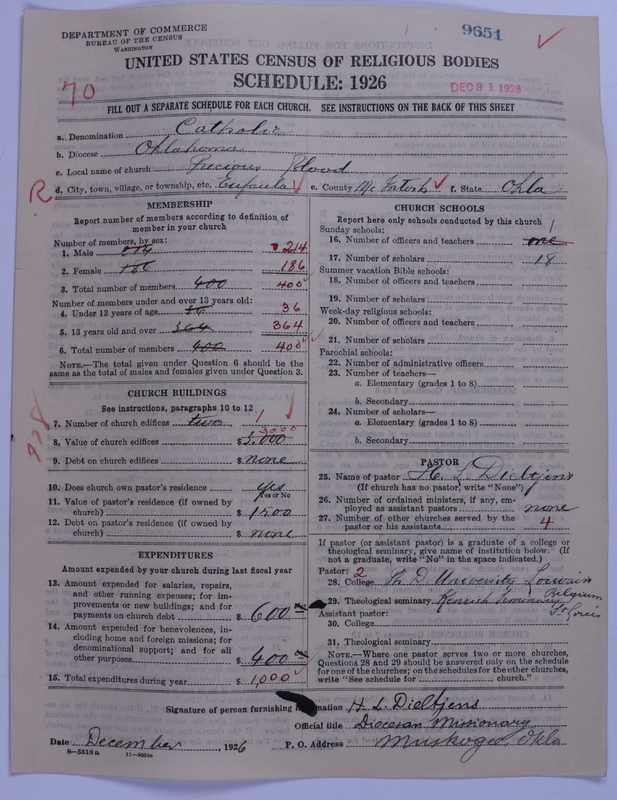 DEPARTMENT OF COMMERCE
BUREAU OF THE CENSUS
WASHINGTON
9651
UNITED STATES CENSUS OF RELIGIOUS BODIES
SCHEDULE: 1926
70
DEC 31 1926
FILL OUT A SEPARATE SCHEDULE FOR EACH CHURCH. SEE INSTRUCTIONS ON THE BACK OF THIS SHEET
a. Denomination Catholic
b. Diocese Oklahoma
c. Local name of church Precious Blood
R
d. City, town, village, or township, etc. Eufaula e. County Mc Intosh f. State Okla
MEMBERSHIP
Report number of members according to definition of
member in your church
Number of members, by sex:
1. Male 214 214
2. Female 186 186
3. Total number of members 400 400
Number of members under and over 13 years old:
4. Under 13 years of age 36 36
5. 13 years old and over 364 364
6. Total number of members 400 400
NOTE.—The total given under Question 6 should be the
same as the total of males and females given under Question 3.
CHURCH BUILDINGS
See instructions, paragraphs 10 to 12
7. Number of church edifices two 1
3000
8. Value of church edifices $ 3.000
9. Debt on church edifices $ none
10. Does church own pastor's residence yes
Yes or No
11. Value of pastor's residence (if owned by
church) $ 1500
12. Debt on pastor's residence (if owned by
church) $ none
EXPENDITURES
Amount expended by your church during last fiscal year
13. Amount expended for salaries, repairs,
and other running expenses; for im-
provements or new buildings; and for
payments on church debt $ 600
14. Amount expended for benevolences, in-
cluding home and foreign missions; for
denominational support; and for all
other purposes $ 400
15. Total expenditures during year $ 1,000
CHURCH SCHOOLS
Report here only schools conducted by this church
Sunday schools:
16. Number of officers and teachers one 1
17. Number of scholars 18
Summer vacation Bible schools:
18. Number of officers and teachers
19. Number of scholars
Week-day religious schools:
20. Number of officers and teachers
21. Number of scholars
Parochial schools:
22. Number of administrative officers
23. Number of teachers—
a. Elementary (grades 1 to 8)
b. Secondary
24. Number of scholars—
a. Elementary (grades 1 to 8)
b. Secondary
PASTOR
25. Name of pastor H. L. Dieltjens
(If church has no pastor, write "None")
26. Number of ordained ministers, if any, em-
ployed as assistant pastors none
27. Number of other churches served by the
pastor or his assistants 4
If pastor (or assistant pastor) is a graduate of a college or
theological seminary, give name of institution below. (If
not a graduate, write "No" in the space indicated.)
Pastor: 2
28. College Ph. D. University Louvain
Belgium
29. Theological seminary Kenrick Seminary
St Louis
Assistant pastor:
30. College
31. Theological seminary
NOTE.—Where one pastor serves two or more churches,
Questions 28 and 29 should be answered only on the schedule
for one of the churches; on the schedules for the other churches,
write "See schedule for church."
Signature of person furnishing information H L Dieltjens
Official title Diocesan Missionary
Date December, 1926
P. O. Address Muskogee, Okla